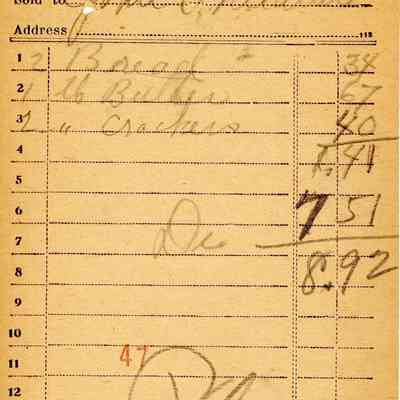 Sold to
Address 113
1 2 Bread 34
2 1 lb Butter 67
3 2 " Crackers 40
4 1.41
5
6 7 51
7
8 8.92
9
10
11 47
12